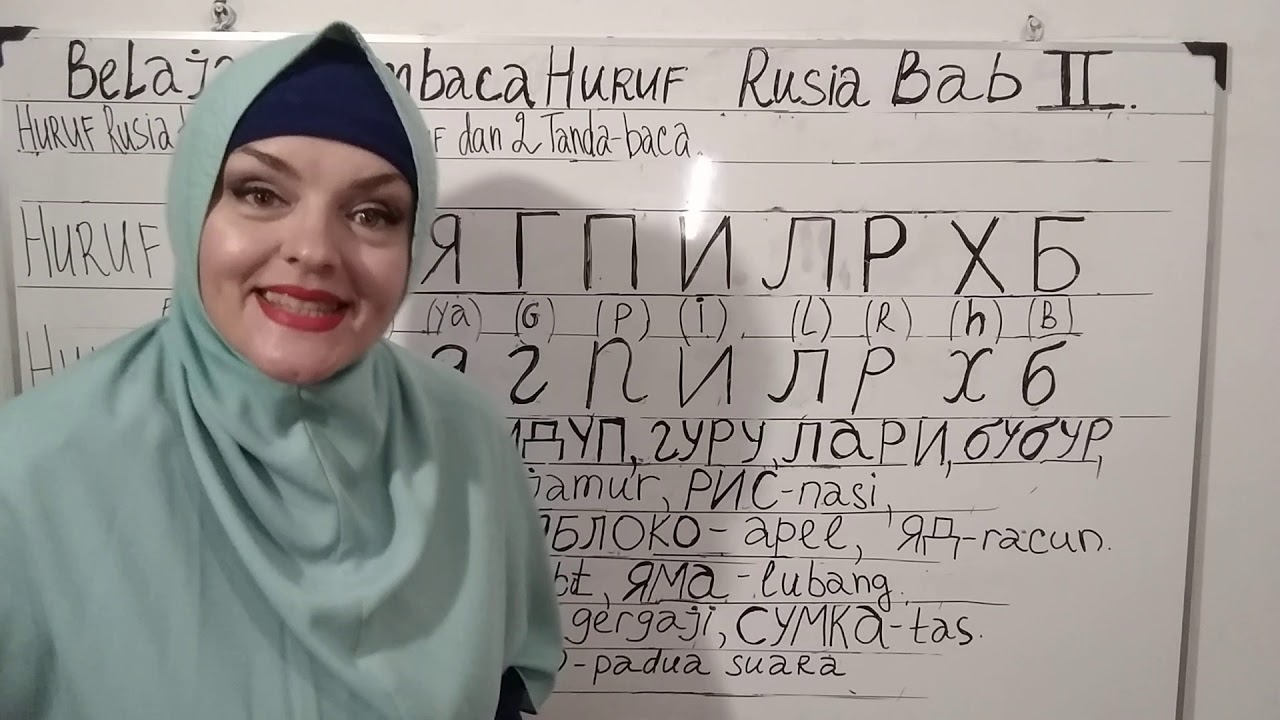 HURUF Rusia Bab II.
HURUF Rusia dan 2 Tanda-baca.
HURUF Я Г П И Л Р Х Б
(ya) (G) (P) (i) (L) (R) (h) (B)
я г п и л р х б
гуру, лари, бубур,
jamur, РИС-nasi,
- apel, ЯД-racun.
ЯМа-lubang.
gergaji, СУМКа-tas.
-padua suara